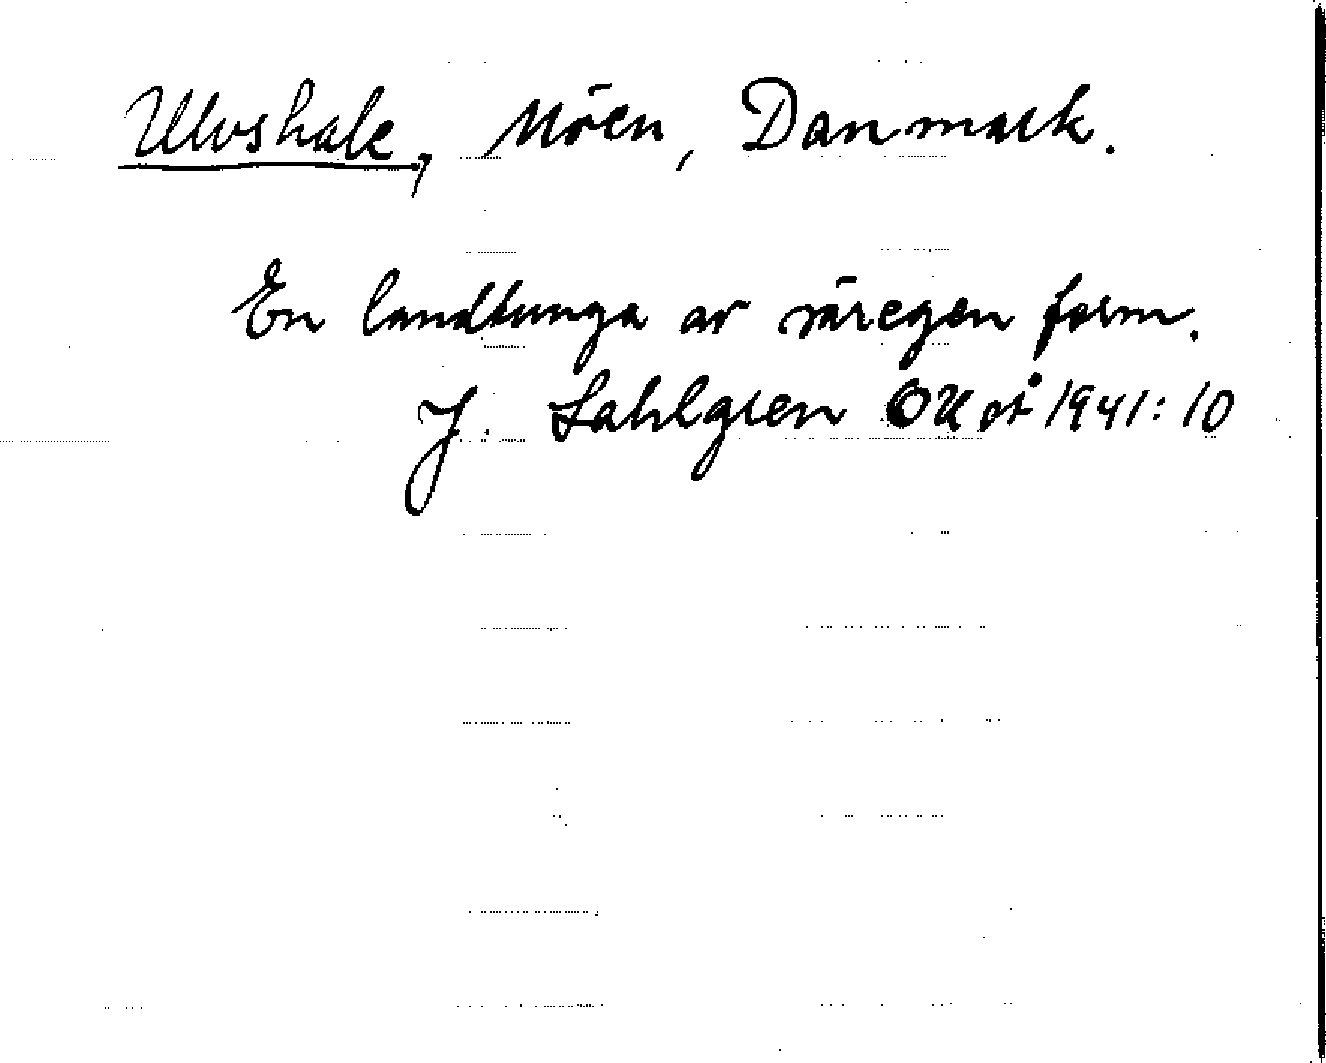 Ulvshale, Möen, Danmark.
En landtunga av säregen form.
J. Sahlgren OUÅ 1941: 10